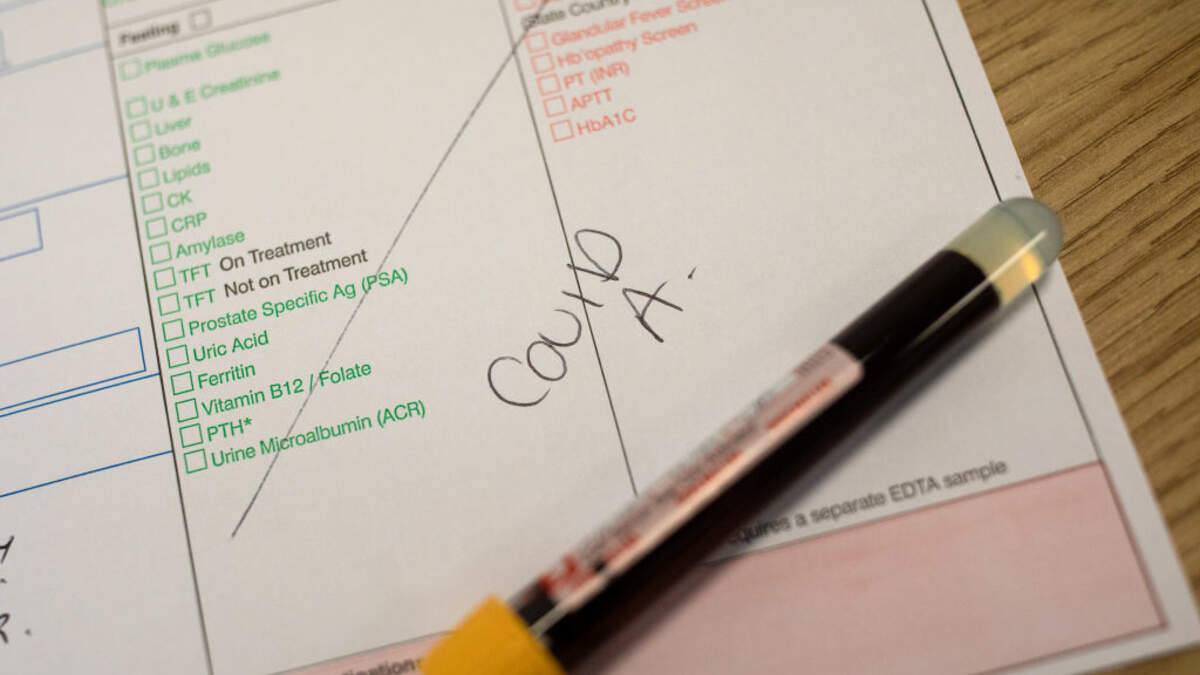 Feeling
Plasma Glucose
U & E Creatinine
Liver
Bone
Lipids
CK
CRP
Amylase
TFT On Treatment
TFT Not on Treatment
Prostate Specific Ag (PSA)
Uric Acid
Ferritin
Vitamin B12 / Folate
PTH*
Urine Microalbumin (ACR)
State Country
Glandular Fever Screen
Hb'opathy Screen
PT (INR)
APTT
HbA1C
COVID
A.
quires a separate EDTA sample